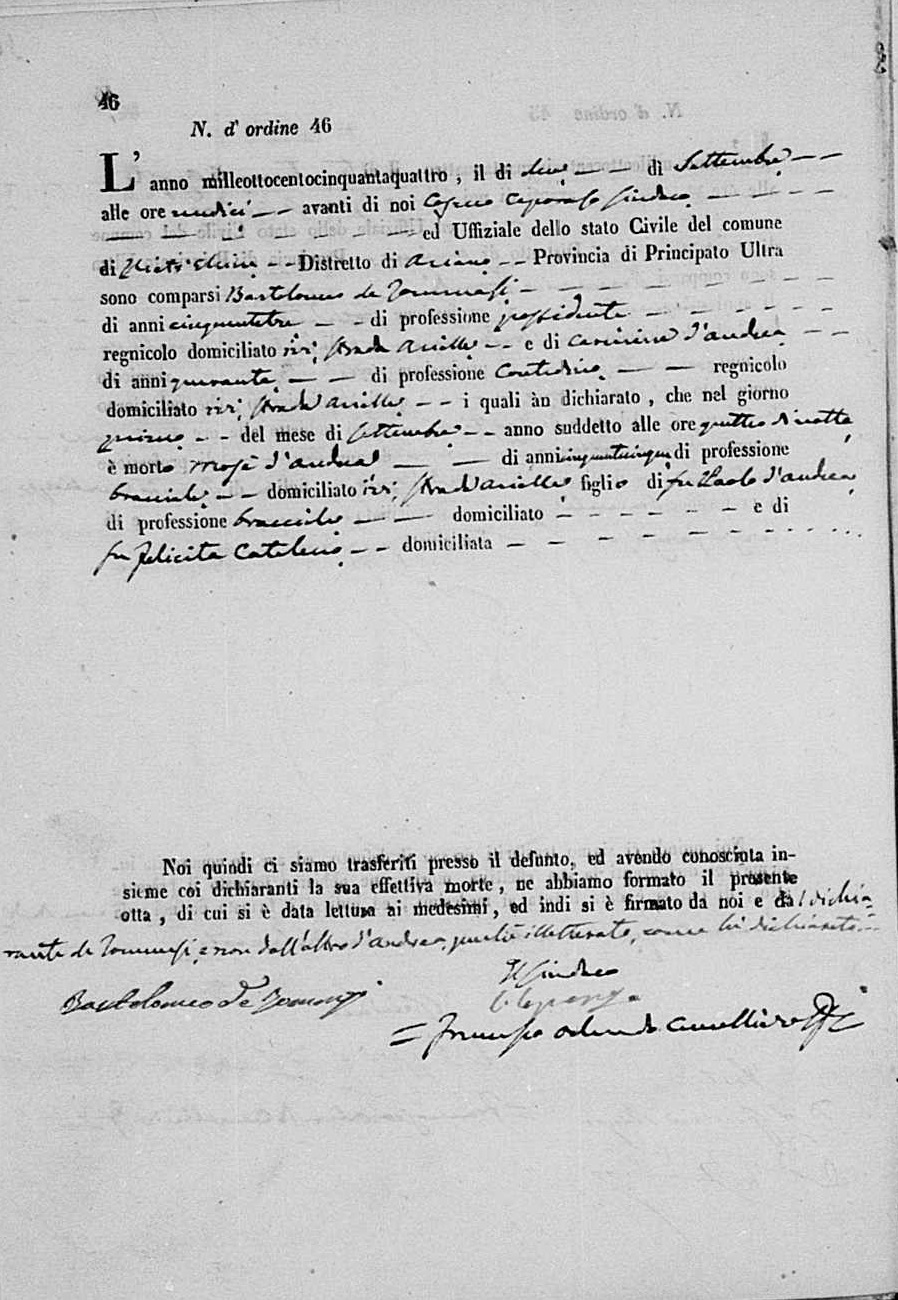 46
N. d' ordine 46
L' anno milleottocentocinquantaquattro, il di due di Settembre
alle ore undici avanti di noi Caporaso Sindaco
ed Uffiziale dello stato Civile del comune
di Distretto di Ariano Provincia di Principato Ultra
sono comparsi Bartolomeo de Tommasi
di anni cinquantatre di professione possidente
regnicolo domiciliato ivi, Strada e di d'Andrea
di anni quaranta di professione Contadino regnicolo
domiciliato ivi, Strada i quali àn dichiarato, che nel giorno
primo del mese di settembre anno suddetto alle ore quattro di notte
è morto Mosè d'Andrea di anni cinquantacinque di professione
bracciale domiciliato ivi, Strada figlio di fu Paolo d'Andrea
di professione bracciale domiciliato e di
fu Felicita domiciliata
Noi quindi ci siamo trasferiti presso il defunto, ed avendo conosciuta in-
sieme coi dichiaranti la sua effettiva morte, ne abbiamo formato il presente
atta, di cui si è data lettura ai medesimi, ed indi si è firmato da noi e dal dichia
rante de Tommasi, e non dall'altro d'Andrea, illetterato, come ha dichiarato
Il Sindaco
Bartolomeo De Tommasi
Cancelliere